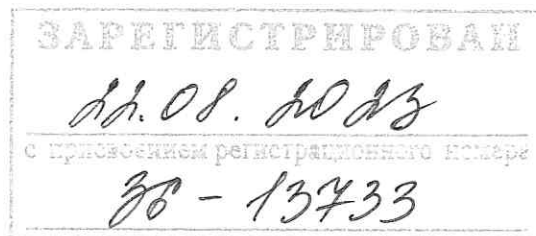 ЗАРЕГИСТРИРОВАН
22.08.2023
с присвоением регистрационного номера
36 - 13733